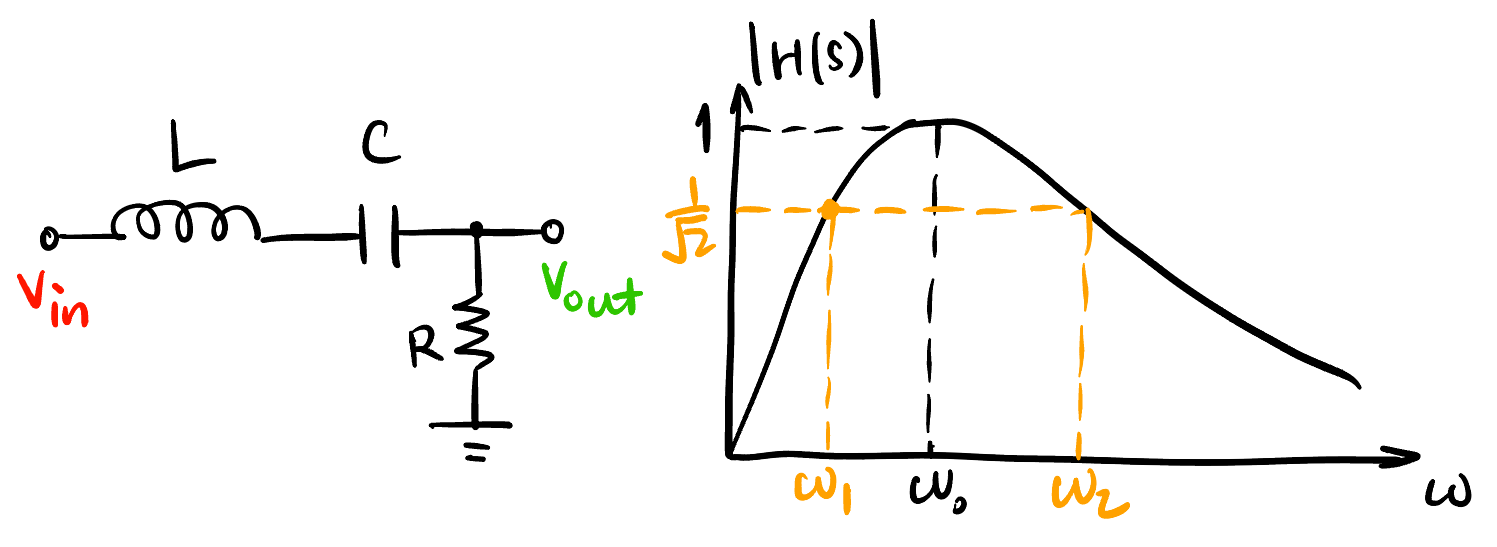 L
C
Vin
Vout
R
|H(s)|
1
1/√2
ω₁
ω₀
ω₂
ω